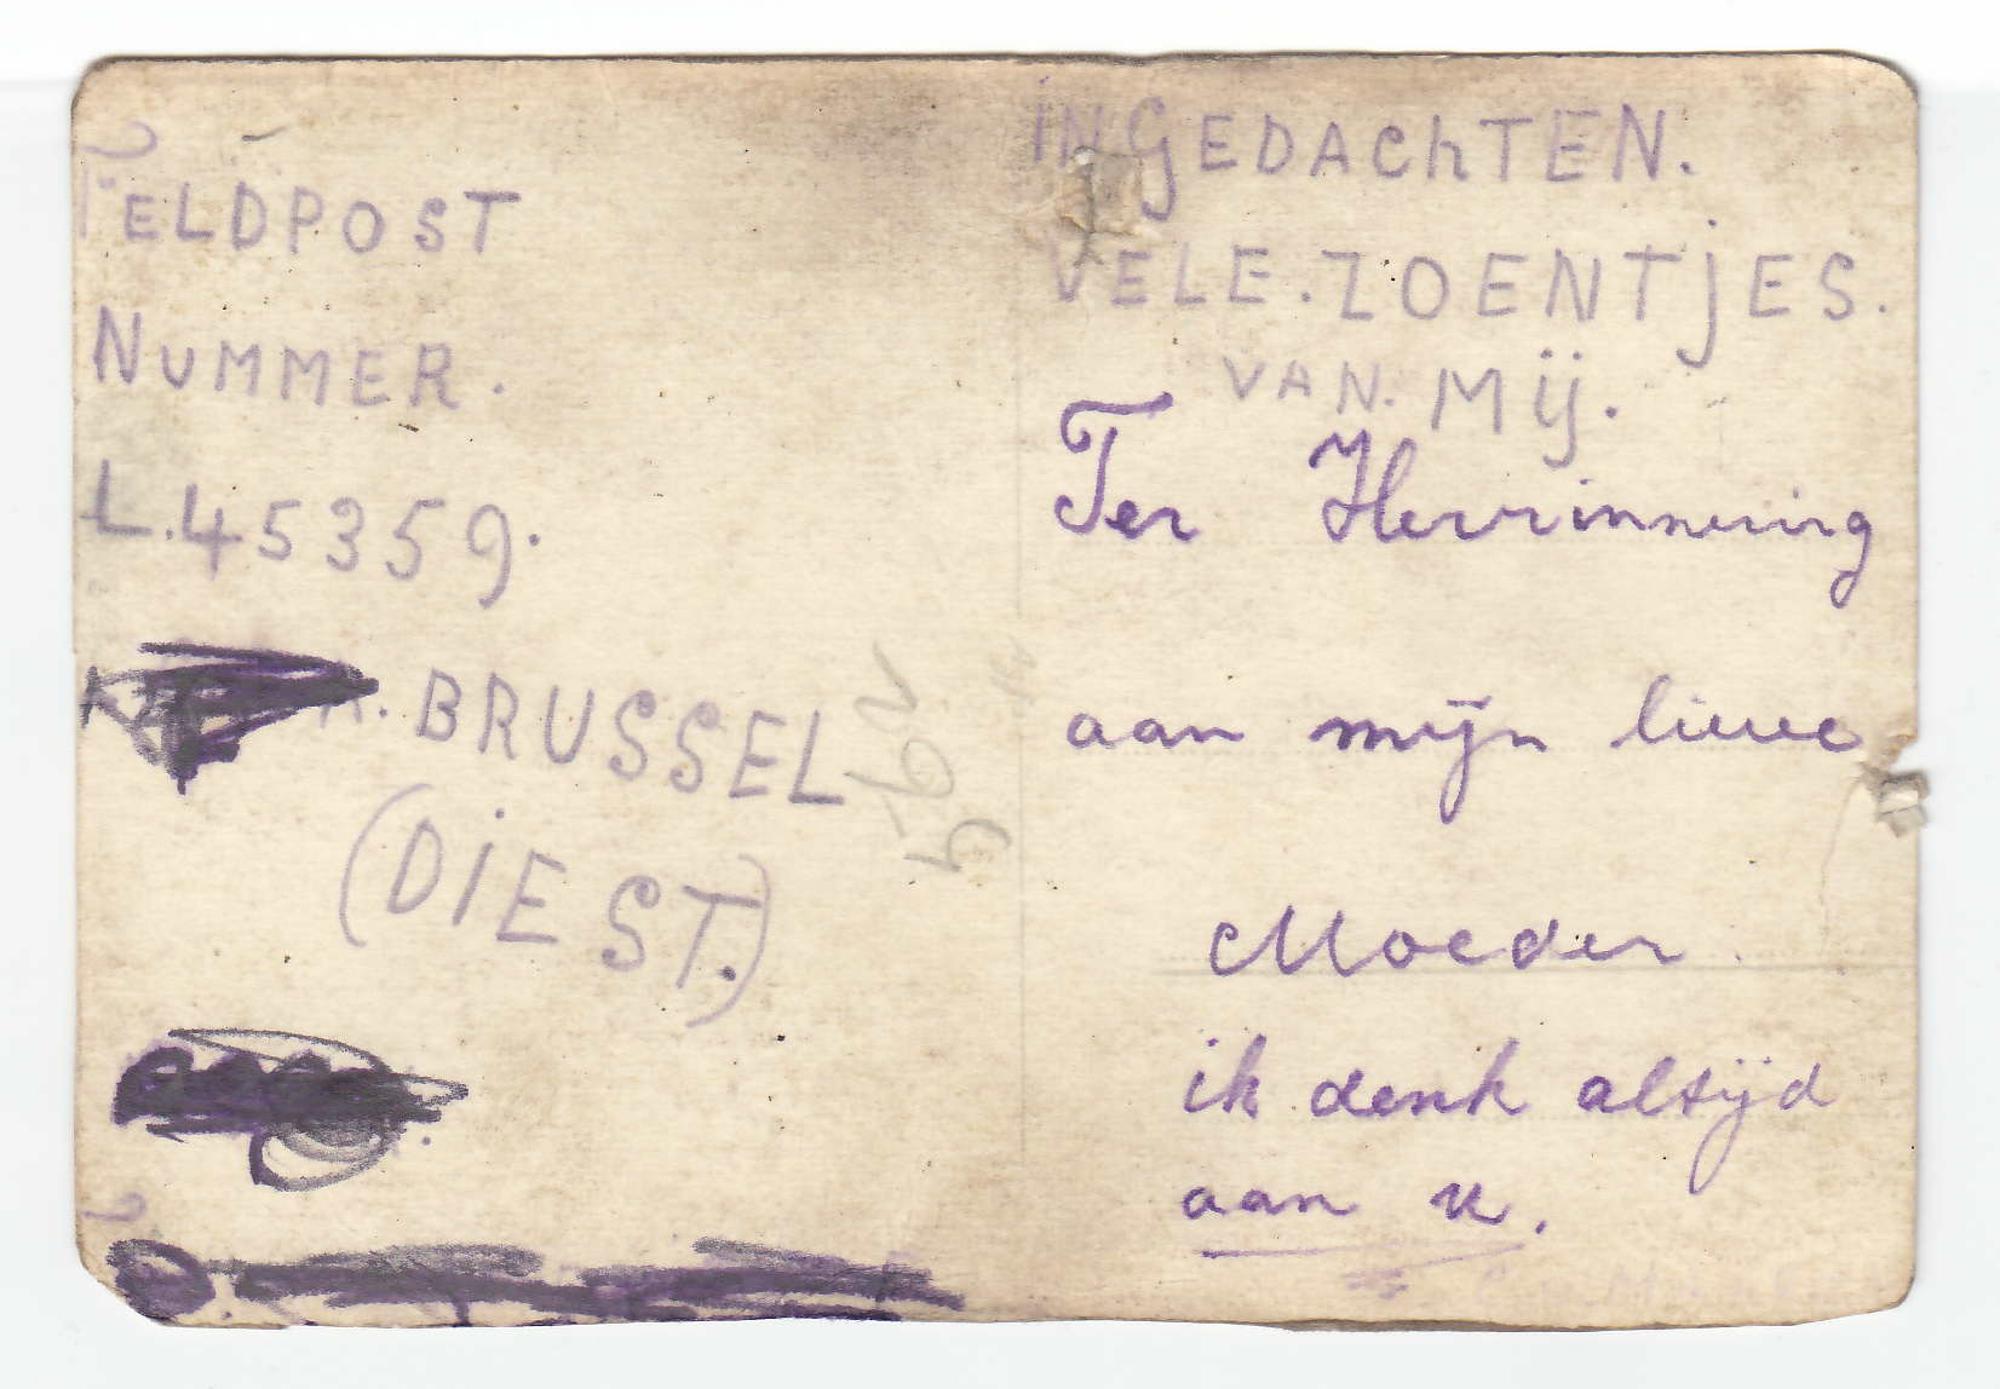 FELDPOST
NUMMER.
L.45359.
BRUSSEL
(DIEST.)
IN GEDACHTEN.
VELE.ZOENTjES.
VAN. Mij.
Ter Herrinnering
aan mijn lieve
Moeder
ik denk altijd
aan u.